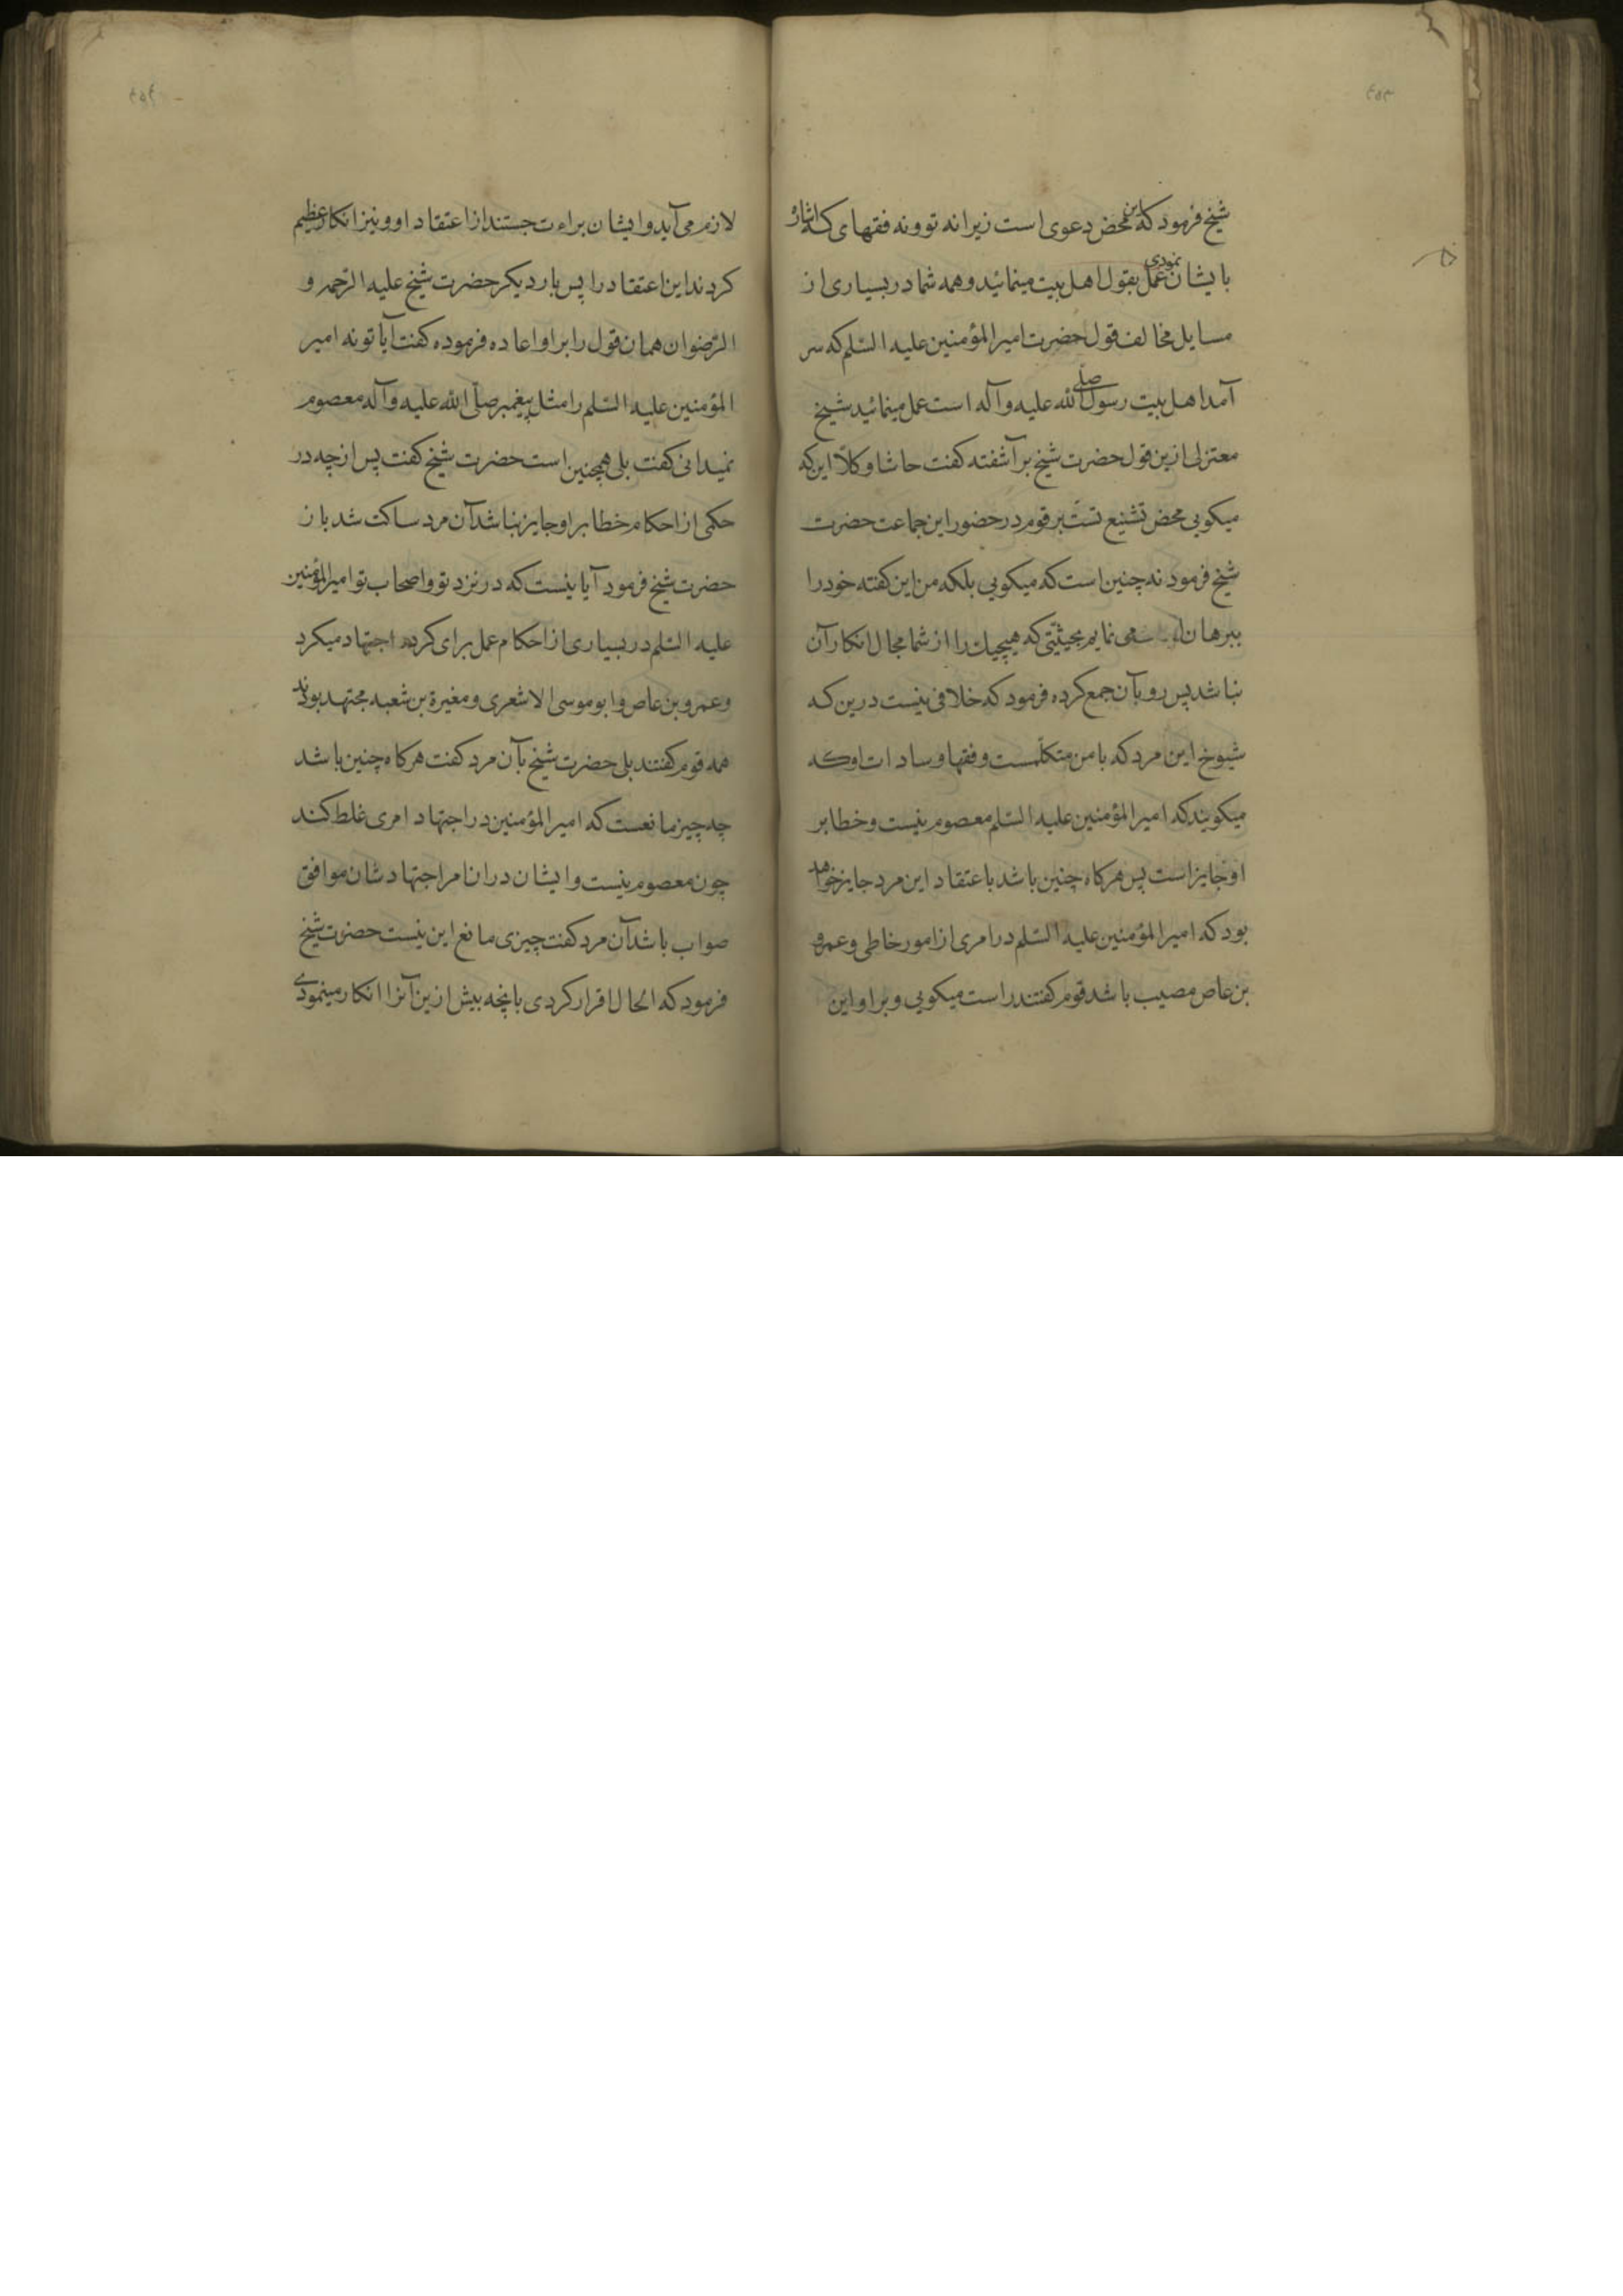 شیخ فرمود که این محض دعوی است زیرا نه تو و نه فقهای که اشاره
بایشان نمودی عمل بقول اهل بیت مینمائید و همه شما در بسیاری از
مسایل مخالف قول حضرت امیرالمؤمنین علیه السّلم که سر
آمد اهل بیت رسول الله صلی علیه و آله است عمل مینمائید شیخ
معتزلی ازین قول حضرت شیخ برآشفته کفت حاشا و کلّا این که
میکویی محض تشنیع تست بر قوم در حضور این جماعت حضرت
شیخ فرمود نه چنین است که میکویی بلکه من این کفته خود را
ببرهان می نمایم بحیثیتی که هیچیک را از شما مجال انکار آن
نباشد پس رو بآن جمع کرده فرمود که خلافی نیست درین که
شیوخ این مرد که با من متکلّمست و فقها و سادات او که
میکویند که امیرالمؤمنین علیه السّلم معصوم نیست و خطا بر
او جایز است پس هرکاه چنین باشد باعتقاد این مرد جایز خواهد
بود که امیرالمؤمنین علیه السّلم در امری از امور خاطی و عمرو
بن عاص مصیب باشد قوم کفتند راست میکویی و بر او این
لازم می آید و ایشان براءت جستند از اعتقاد او و نیز انکار عظیم
کردند این اعتقاد را پس بار دیکر حضرت شیخ علیه الرّحمه و
الرّضوان همان قول را بر او اعاده فرموده کفت آیا تو نه امیر
المؤمنین علیه السّلم را مثل پیغمبر صلّی الله علیه و آله معصوم
نمیدانی کفت بلی همچنین است حضرت شیخ کفت پس از چه در
حکمی از احکام خطا بر او جایز نباشد آن مرد ساکت شد باز
حضرت شیخ فرمود آیا نیست که در نزد تو و اصحاب تو امیرالمؤمنین
علیه السّلم در بسیاری از احکام عمل برای کرده اجتهاد میکرد
و عمرو بن عاص و ابو موسی الاشعری و مغیرة بن شعبه مجتهد بودند
همه قوم کفتند بلی حضرت شیخ بآن مرد کفت هرکاه چنین باشد
چه چیز مانعست که امیرالمؤمنین در اجتهاد امری غلط کند
چون معصوم نیست و ایشان در ان امر اجتهادشان موافق
صواب باشد آن مرد کفت چیزی مانع این نیست حضرت شیخ
فرمود که الحال اقرار کردی بانچه پیش ازین آنرا انکار مینمودی